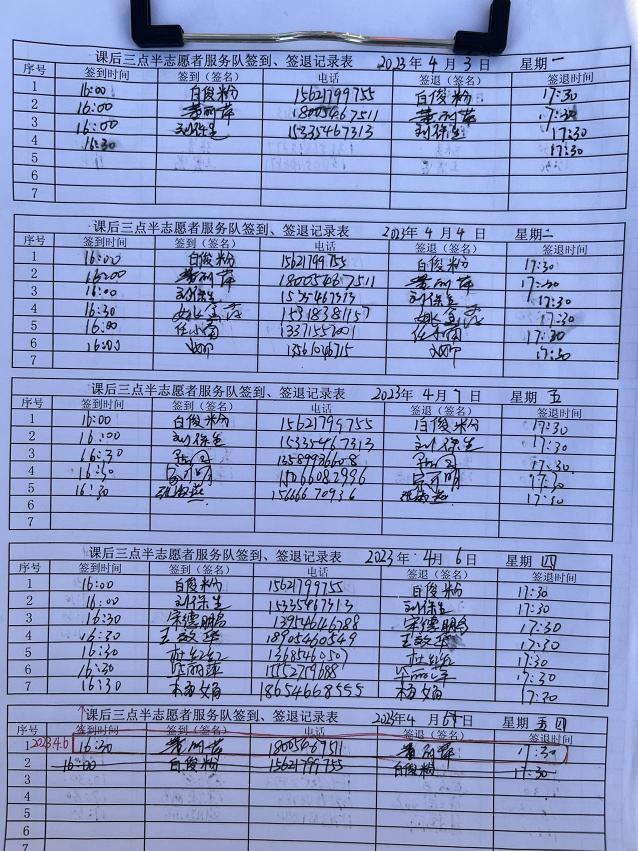 课后三点半志愿者服务队签到、签退记录表 2023年 4 月 3 日 星期 一
序号 签到时间 签到（签名） 电话 签退（签名） 签退时间
1 16:00 白俊粉 15621799755 白俊粉 17:30
2 16:00 18005467511 17:30
3 16:00 刘保生 15335467313 刘保生 17:30
4 16:30 17:30
5
6
7
课后三点半志愿者服务队签到、签退记录表 2023年 4 月 4 日 星期 二
序号 签到时间 签到（签名） 电话 签退（签名） 签退时间
1 16:00 白俊粉 15621799755 白俊粉 17:30
2 16:00 18005467511 17:30
3 16:00 刘保生 15335467313 刘保生 17:30
4 16:30 15318381157 17:30
5 16:00 13371557001 17:30
6 16:00 13561046715 17:30
7
课后三点半志愿者服务队签到、签退记录表 2023年 4 月 7 日 星期 五
序号 签到时间 签到（签名） 电话 签退（签名） 签退时间
1 16:00 白俊粉 15621799755 白俊粉 17:30
2 16:00 刘保生 15335467313 刘保生 17:30
3 16:30 13589966608 17:30
4 16:30 15066082996 17:30
5 16:30 17:30
6
7
课后三点半志愿者服务队签到、签退记录表 2023年 4月 6 日 星期 四
序号 签到时间 签到（签名） 电话 签退（签名） 签退时间
1 16:00 白俊粉 15621799755 白俊粉 17:30
2 16:00 刘保生 15335467313 刘保生 17:30
3 16:30 宋德明 13954646788 宋德明 17:30
4 16:30 王 18905460549 王 17:30
5 16:30 杜 杜 17:30
6 16:30 毕丽萍 毕丽萍 17:30
7 16:30 18654668555 17:30
课后三点半志愿者服务队签到、签退记录表 2023年4 月 6日 星期 四
序号 签到时间 签到（签名） 电话 签退（签名） 签退时间
1 2023.4.6 16:30 18005467511 17:30
2 16:00 白俊粉 15621799755 白俊粉 17:30
3
4
5
6
7